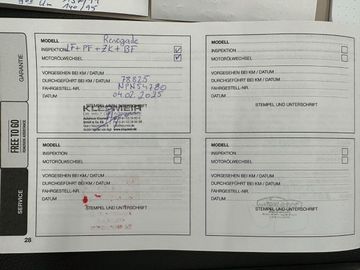 GARANTIE
FREE TO GO
SERVICE
MODELL Renegade
INSPEKTION LF+PF+ZK+BF
MOTORÖLWECHSEL
VORGESEHEN BEI KM / DATUM
DURCHGEFÜHRT BEI KM / DATUM 78825
FAHRGESTELL-NR. NPN54780
DATUM 04.02.2025
STEMPEL UND UNTERSCHRIFT
MODELL
INSPEKTION
MOTORÖLWECHSEL
VORGESEHEN BEI KM / DATUM
DURCHGEFÜHRT BEI KM / DATUM
FAHRGESTELL-NR.
DATUM
STEMPEL UND UNTERSCHRIFT
MODELL
INSPEKTION
MOTORÖLWECHSEL
VORGESEHEN BEI KM / DATUM
DURCHGEFÜHRT BEI KM / DATUM
FAHRGESTELL-NR.
DATUM
STEMPEL UND UNTERSCHRIFT
MODELL
INSPEKTION
MOTORÖLWECHSEL
VORGESEHEN BEI KM / DATUM
DURCHGEFÜHRT BEI KM / DATUM
FAHRGESTELL-NR.
DATUM
STEMPEL UND UNTERSCHRIFT
28